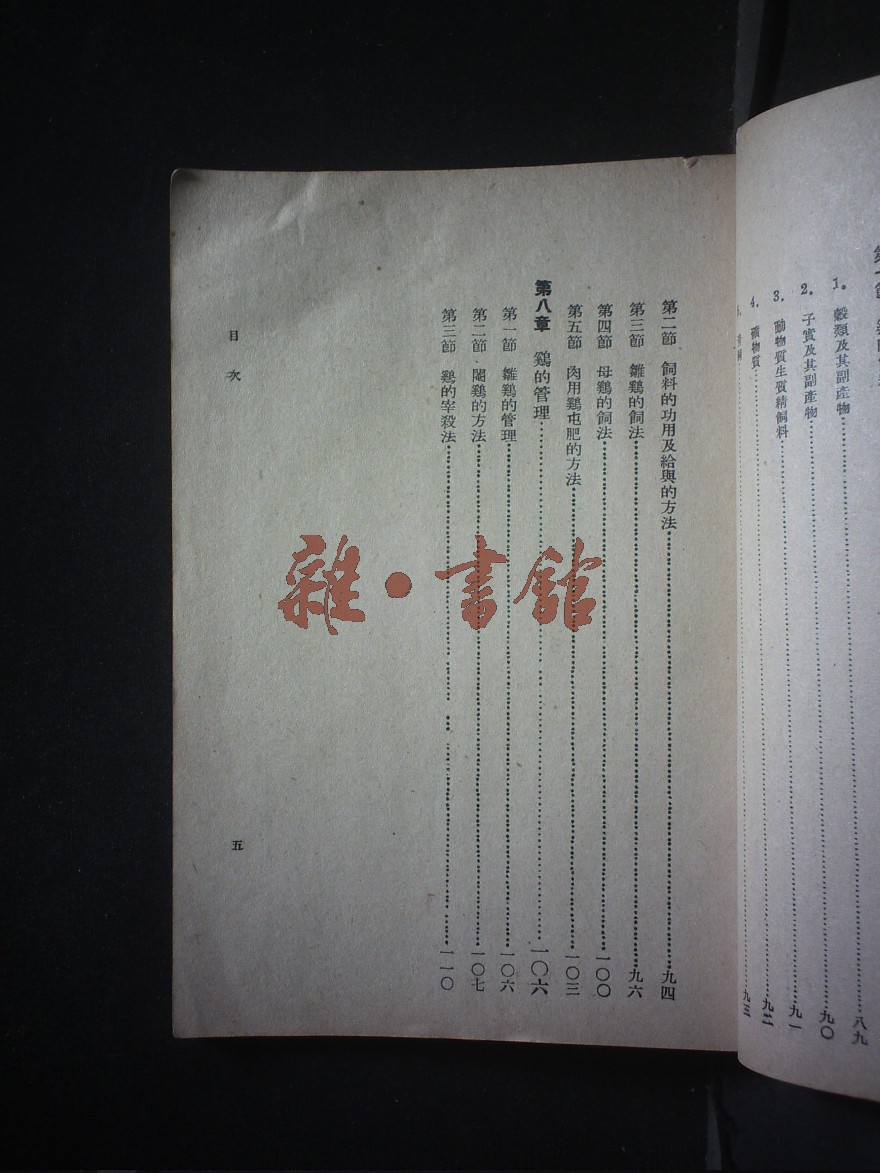 1. 穀類及其副產物……八九
2. 子實及其副產物……九〇
3. 動物質生質精飼料……九一
4. 礦物質……九二
九三
第二節 飼料的功用及給與的方法……九四
第三節 雛鷄的飼法……九六
第四節 母鷄的飼法……一〇〇
第五節 肉用鷄屯肥的方法……一〇三
第八章 鷄的管理……一〇六
第一節 雛鷄的管理……一〇六
第二節 閹鷄的方法……一〇七
第三節 鷄的宰殺法……一一〇
目次
五
雜·書館